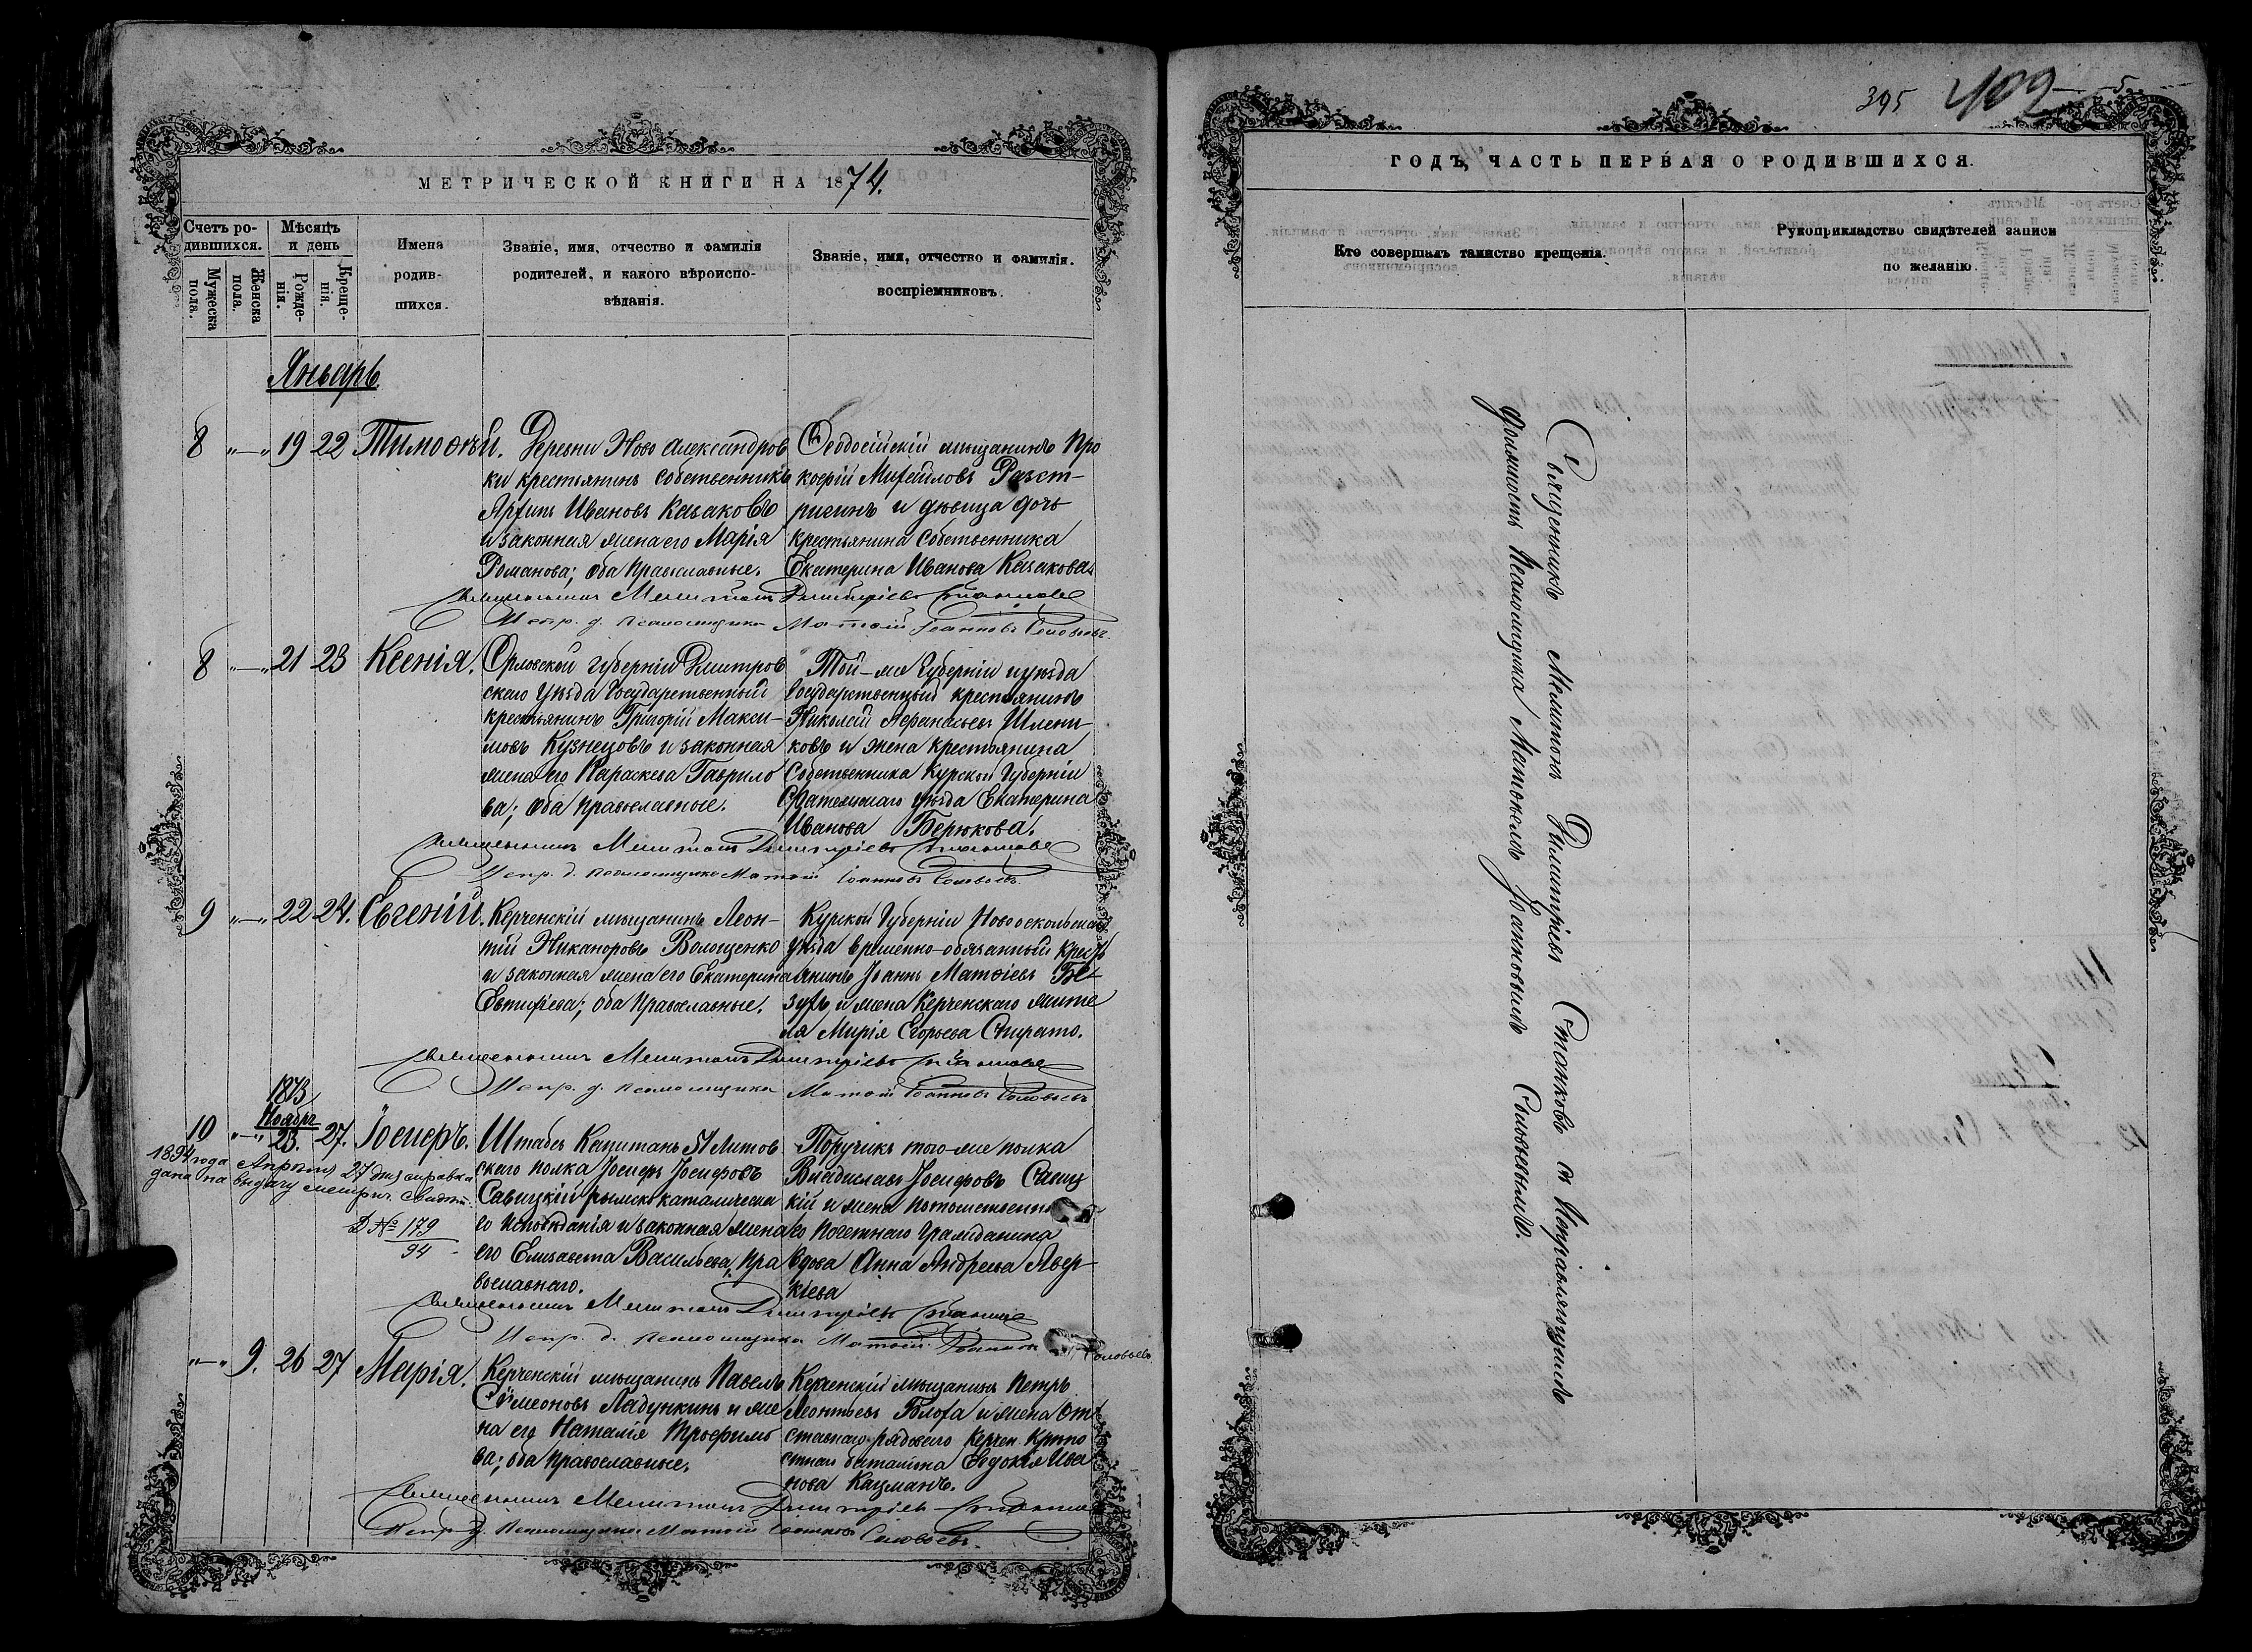 МЕТРИЧЕСКОЙ КНИГИ НА 1874.
Счетъ ро-
дившихся.
Мужеска
пола.
Женска
пола.
Мѣсяцъ
и день
Рожде-
нія.
Креще-
нія.
Имена
родив-
шихся.
Званіе, имя, отчество и фамилія
родителей, и какого вѣроиспо-
вѣданія.
Званіе, имя, отчество и фамилія.
воспріемниковъ.
Январь
8 „—„ 19 22 Тимоѳей.
Деревни Ново Александров
ки крестьянинъ собственникъ
Ивановъ Казаковъ
и законная жена его Марія
Романова; оба православные.
Феодосійскій мѣщанинъ Про
кофій Михайловъ
и дѣвица дочь
крестьянина собственника
Екатерина Иванова Казакова.
Священникъ Мелитонъ Димитріевъ Станковъ
Испр. д. псаломщика Матѳій Іоанновъ Соловьевъ.
8 „—„ 21 23 Ксенія.
Орловской губерніи Дмитров
скаго уѣзда Государственный
крестьянинъ Григорій Макси-
мовъ Кузнецовъ и законная
жена его Параскева Гаврило
ва; оба православные.
Той-же губерніи и уѣзда
Государственный крестьянинъ
Николай Афанасьевъ
ковъ и жена крестьянина
Собственника Курской Губерніи
уѣзда Екатерина
Иванова Берюкова.
Священникъ Мелитонъ Димитріевъ Станковъ
Испр. д. псаломщика Матѳій Іоанновъ Соловьевъ.
9 „—„ 22 24. Евгеній.
Керченскій мѣщанинъ Леон-
тій Никаноровъ Волощенко
и законная жена его Екатерина
Евтихіева; оба православные.
Курской Губерніи Новооскольскаго
уѣзда временно-обязанный крест
янинъ Іоаннъ Матѳіевъ
и жена Керченскаго жите
ля Марія Егорьева
Священникъ Мелитонъ Димитріевъ Станковъ
Испр. д. псаломщика Матѳій Іоанновъ Соловьевъ
1873
Ноябрь
10 „—„ 23. 27. Іосифъ.
1894 года Апрѣля 27 дня справка
дана на выдачу метрич. свидѣт.
№ 179
94
Штабсъ Капитанъ 51 Литов
скаго полка Іосифъ Іосифовъ
Савицкій римско католическа
го исповѣданія и законная жена
его Елизавета Васильева, пра
вославнаго.
Поручикъ того-же полка
Владиславъ Іосифовъ Савиц
кій и жена потомственна
го Почетнаго Гражданина
вдова Анна Андреева Авер-
кіева
Священникъ Мелитонъ Димитріевъ Станковъ
Испр. д. псаломщика Матѳій Іоанновъ Соловьевъ
„—„ 9. 26 27 Марія.
Керченскій мѣщанинъ Павелъ
Симеоновъ Ладункинъ и же
на его Наталія Трофимо
ва; оба православные.
Керченскій мѣщанинъ Петръ
Леонтьевъ Блоха и жена от
ставнаго рядоваго Керчен. Крѣпо
стнаго баталіона Евдокія Ива
нова Кацманъ.
Священникъ Мелитонъ Димитріевъ Станковъ
Испр. д. псаломщика Матѳій Іоанновъ
Соловьевъ.
395 402 5
ГОДЪ, ЧАСТЬ ПЕРВАЯ О РОДИВШИХСЯ.
Кто совершалъ таинство крещенія.
Рукоприкладство свидѣтелей записи
по желанію.
Священникъ Мелитонъ Димитріевъ Станковъ съ Исправляющимъ
должность Псаломщика Матѳеемъ Іоанновымъ Соловьевымъ.